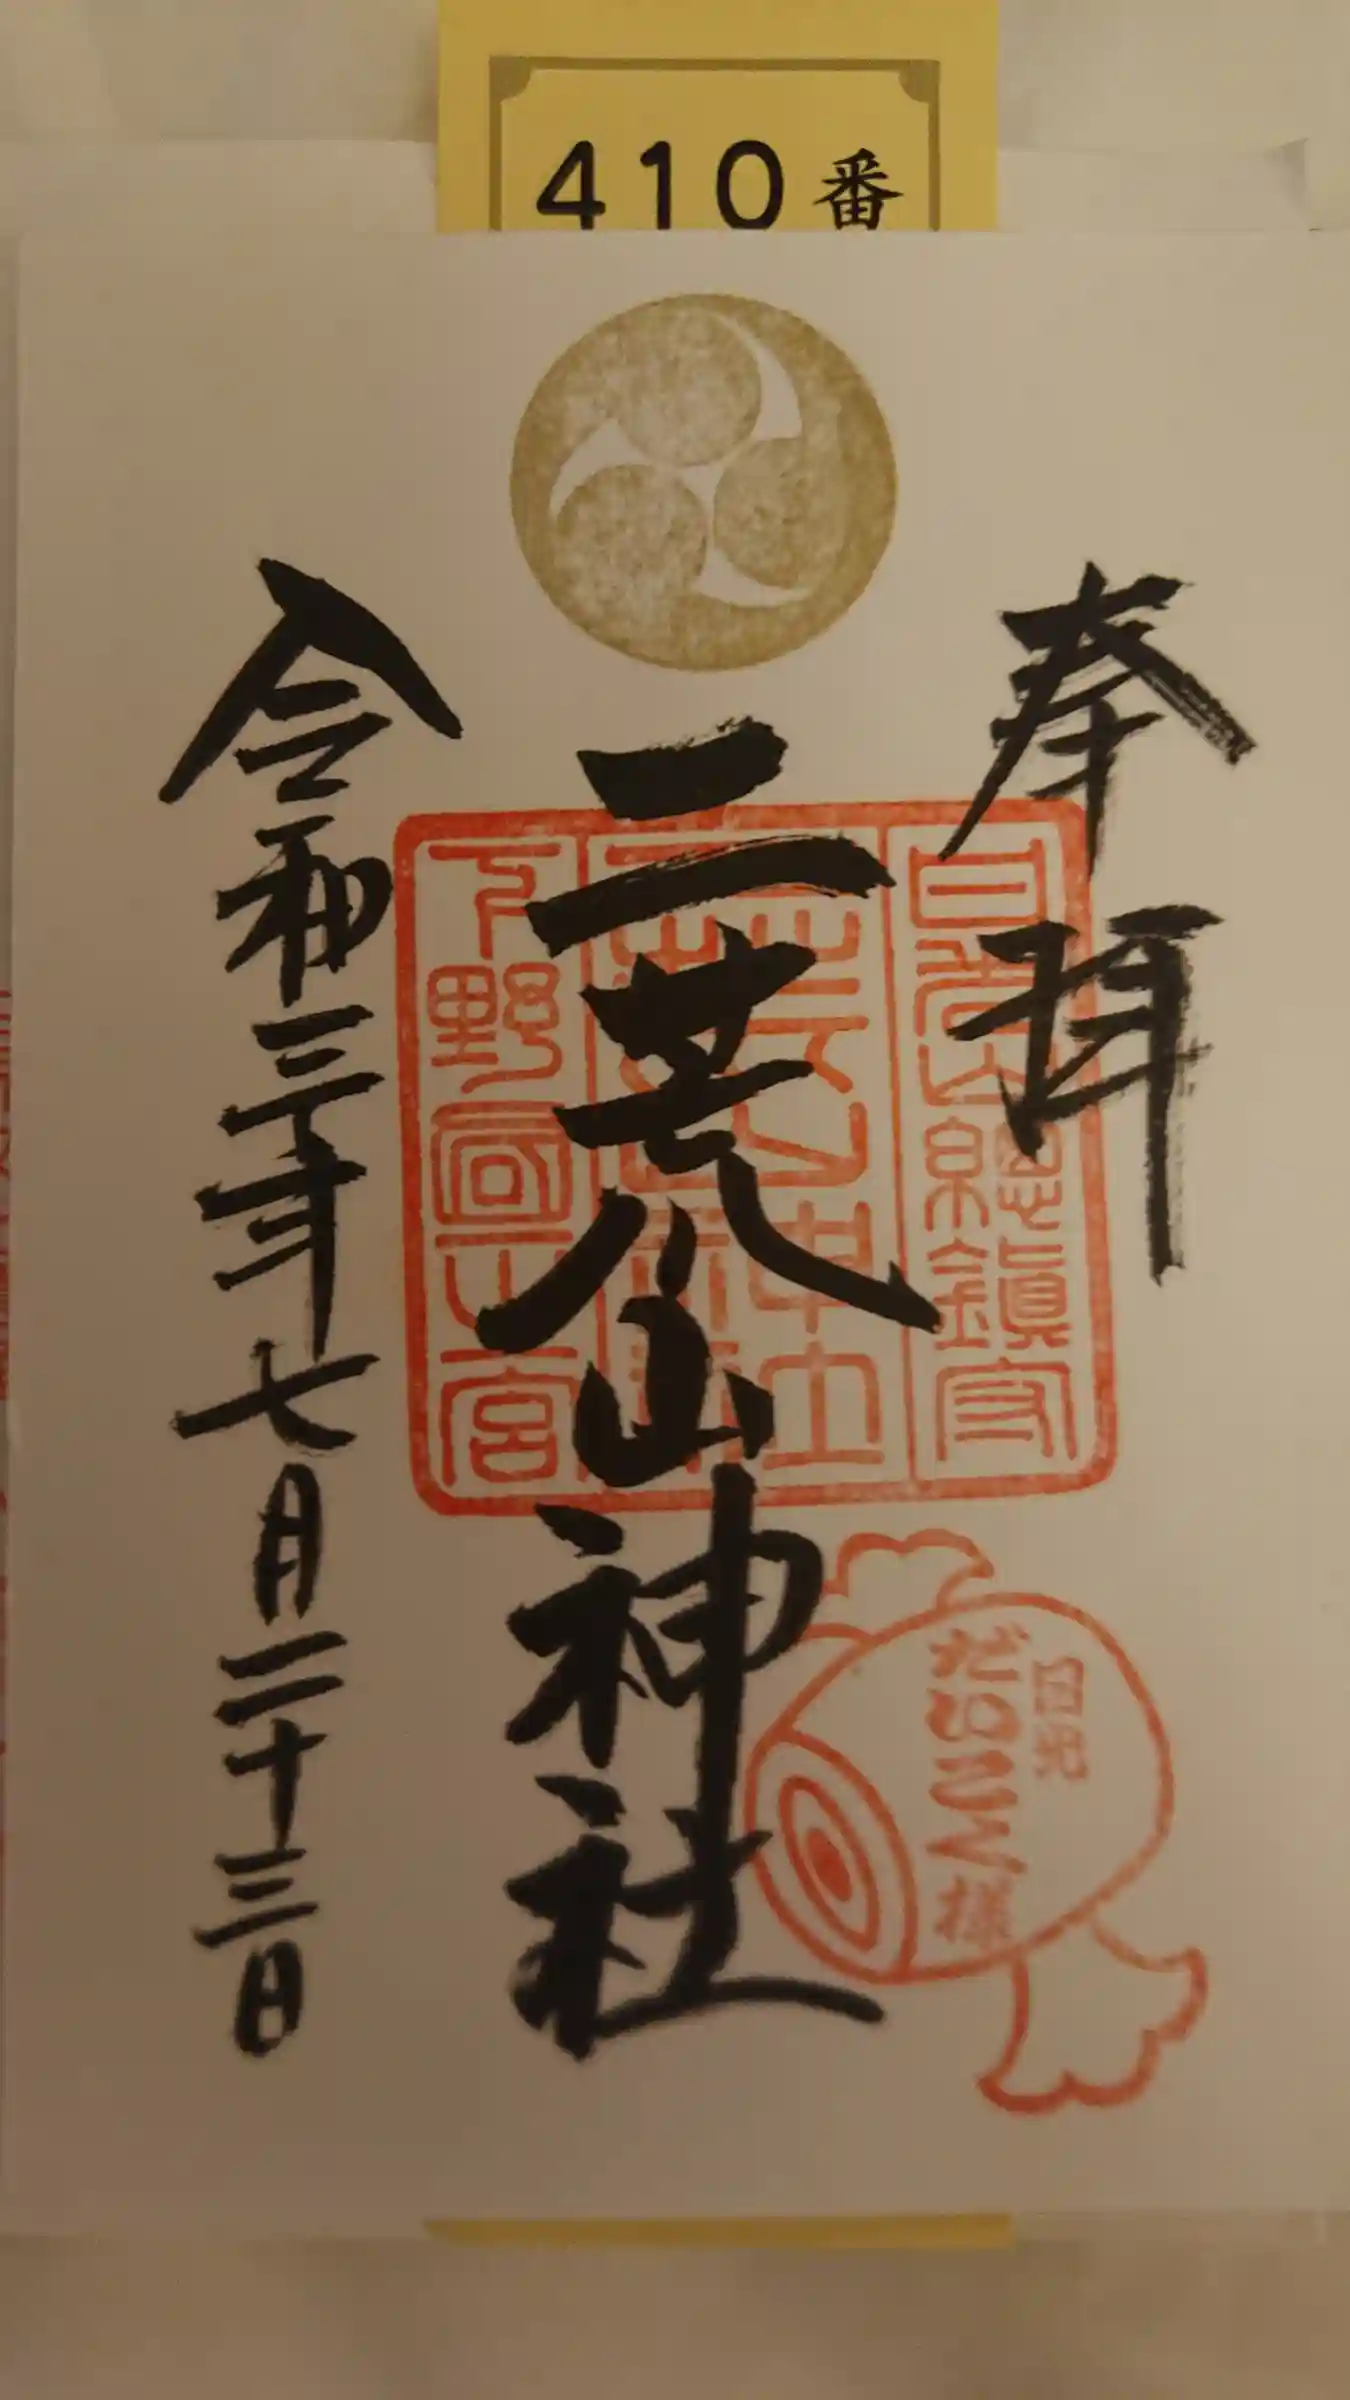 410番
奉拝
二荒山神社
令和三年七月二十三日
日光總鎮守
下野国一之宮
日光
だいこく様